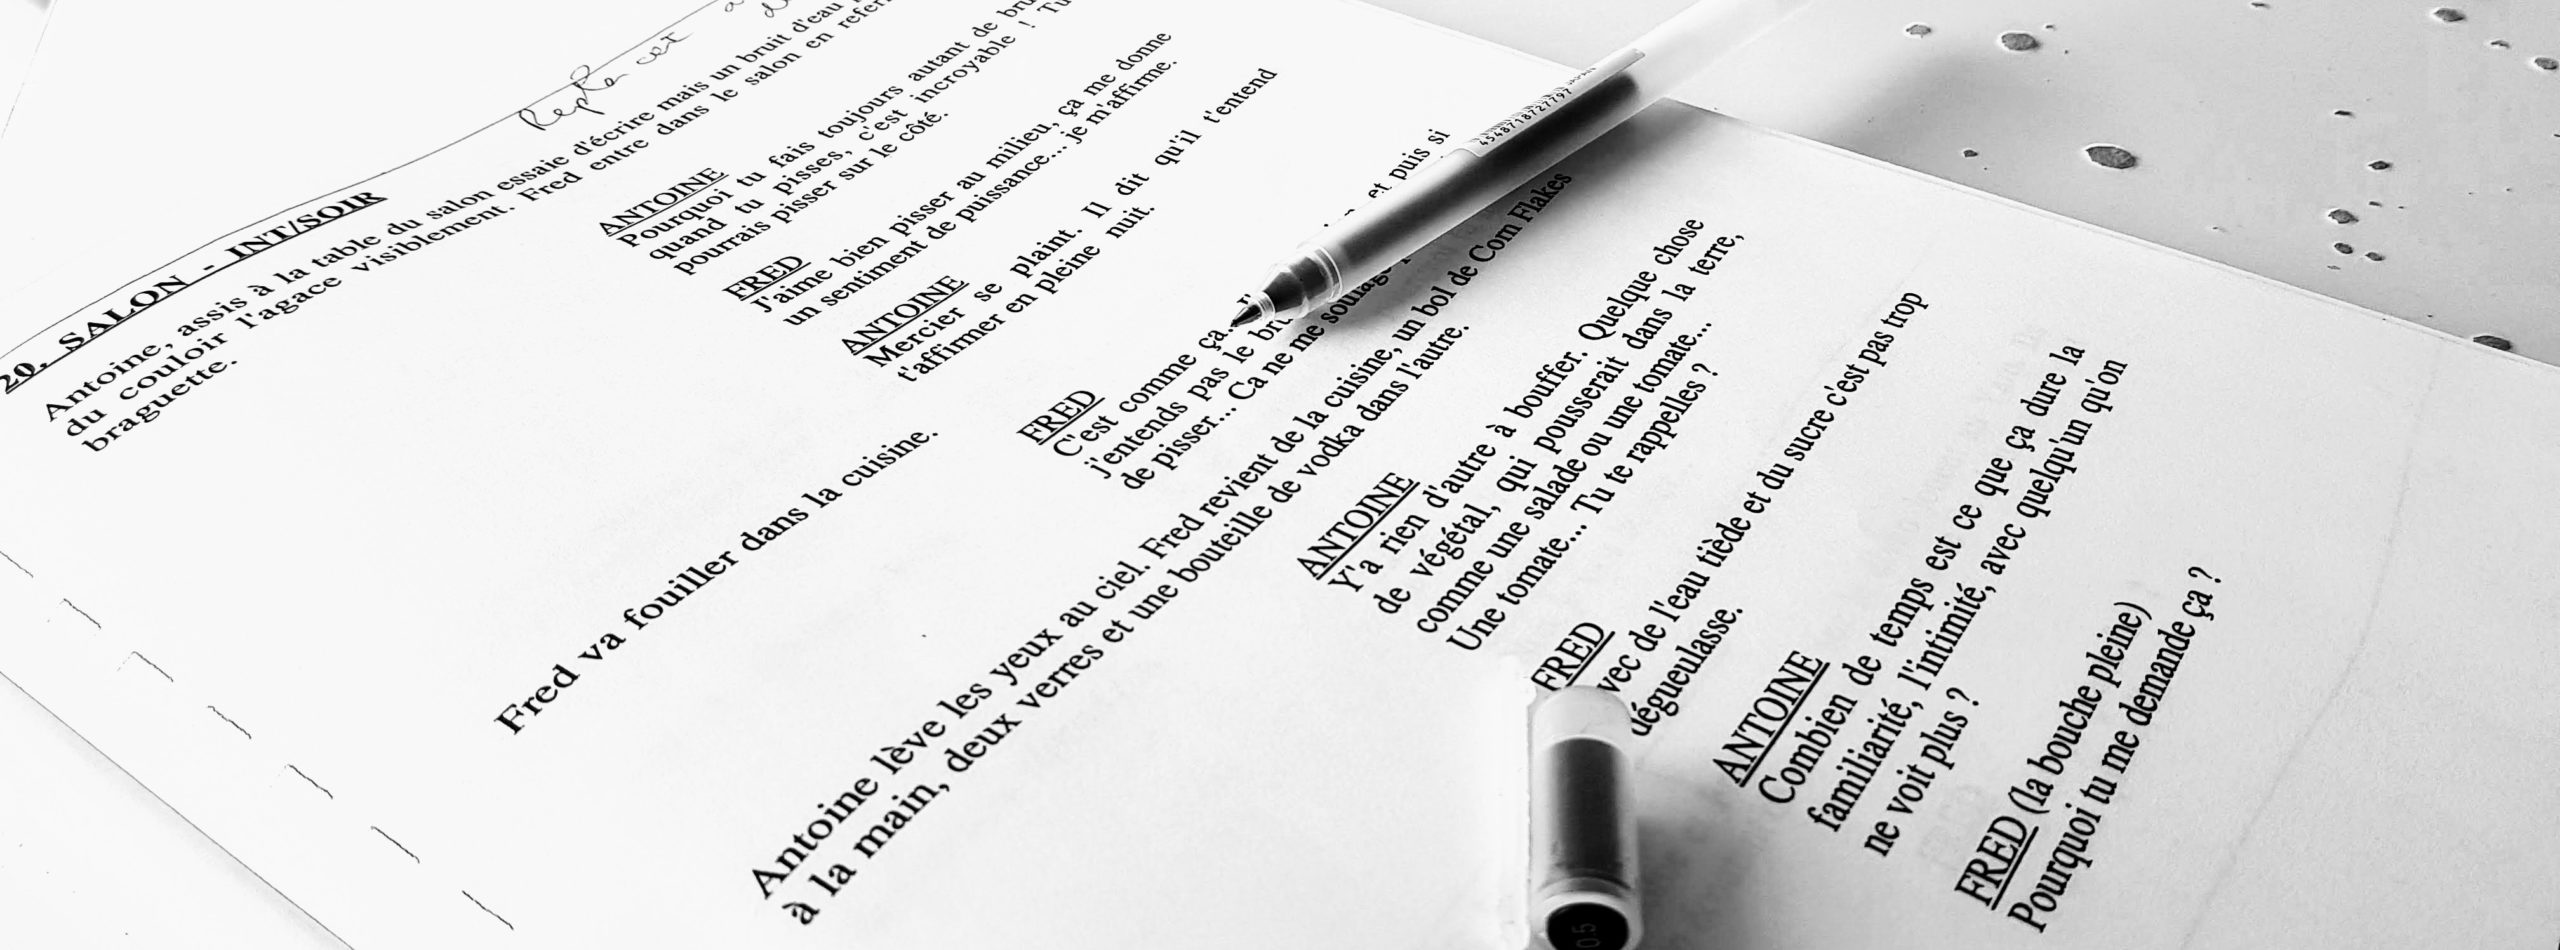 Repla cet
20. SALON - INT/SOIR
Antoine, assis à la table du salon essaie d'écrire mais un bruit d'eau
du couloir l'agace visiblement. Fred entre dans le salon en
braguette.
ANTOINE
Pourquoi tu fais toujours autant de
quand tu pisses, c'est incroyable ! Tu
pourrais pisser sur le côté.
FRED
J'aime bien pisser au milieu, ça me donne
un sentiment de puissance... je m'affirme.
ANTOINE
Mercier se plaint. Il dit qu'il t'entend
t'affirmer en pleine nuit.
Fred va fouiller dans la cuisine.
FRED
C'est comme ça... et puis si
j'entends pas le
de pisser... Ca ne me soulage
Antoine lève les yeux au ciel. Fred revient de la cuisine, un bol de Corn Flakes
à la main, deux verres et une bouteille de vodka dans l'autre.
ANTOINE
Y'a rien d'autre à bouffer. Quelque chose
de végétal, qui pousserait dans la terre,
comme une salade ou une tomate...
Une tomate... Tu te rappelles ?
FRED
vec de l'eau tiède et du sucre c'est pas trop
dégueulasse.
ANTOINE
Combien de temps est ce que ça dure la
familiarité, l'intimité, avec quelqu'un qu'on
ne voit plus ?
FRED (la bouche pleine)
Pourquoi tu me demande ça ?
JAPAN
4548718727797
0.5